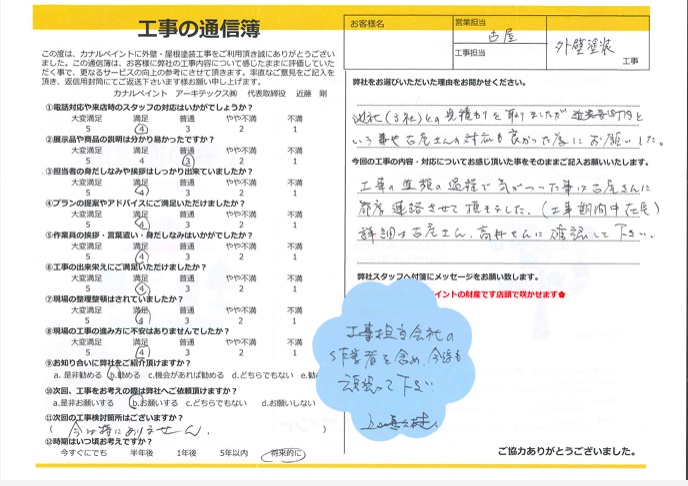 工事の通信簿
この度は、カナルペイントに外壁・屋根塗装工事をご利用頂き誠にありがとうござい
ました。この通信簿は、お客様に弊社の工事内容について感じたままに評価していた
だく事で、更なるサービスの向上の参考にさせて頂きます。率直なご意見をご記入を
頂き、返信用封筒にてご返送下さいます様お願い申し上げます。
カナルペイント アーキテックス㈱ 代表取締役 近藤 剛
①電話対応や来店時のスタッフの対応はいかがでしょうか?
大変満足 満足 普通 やや不満 不満
5 4 3 2 1
②展示品や商品の説明は分かり易かったですか?
大変満足 満足 普通 やや不満 不満
5 4 3 2 1
③担当者の身だしなみや挨拶はしっかり出来ていましたか?
大変満足 満足 普通 やや不満 不満
5 4 3 2 1
④プランの提案やアドバイスにご満足いただけましたか?
大変満足 満足 普通 やや不満 不満
5 4 3 2 1
⑤作業員の挨拶・言葉遣い・身だしなみはいかがでしたか?
大変満足 満足 普通 やや不満 不満
5 4 3 2 1
⑥工事の出来栄えにご満足いただけましたか?
大変満足 満足 普通 やや不満 不満
5 4 3 2 1
⑦現場の整理整頓はされていましたか?
大変満足 満足 普通 やや不満 不満
5 4 3 2 1
⑧現場の工事の進み方に不安はありませんでしたか?
大変満足 満足 普通 やや不満 不満
5 4 3 2 1
⑨お知り合いに弊社をご紹介頂けますか?
a. 是非勧める b.勧める c.機会があれば勧める d.どちらでもない e.勧
⑩次回、工事をお考えの際は弊社へご依頼頂けますか?
a.是非お願いする b.お願いする c.どちらでもない d.お願いしない
⑪次回の工事検討箇所はございますか?
( 今は特にありません. )
⑫時期はいつ頃お考えですか?
今すぐにでも 半年後 1年後 5年以内 将来的に
お客様名
営業担当
古屋
工事担当
外壁塗装
工事
弊社をお選びいただいた理由をお聞かせください。
他社(3社)との見積りを取りましたが
いう事や古屋さんの対応も良かった為にお願いした。
今回の工事の内容・対応についてお感じ頂いた事をそのままご記入お願いいたします。
工事の進類の過程で気がついた事は古屋さんに
都度連絡させて頂きました.(工事期間中在宅)
詳細は古屋さん、高井さんに確認して下さい.
弊社スタッフへ付箋にメッセージをお願い致します。
イントの財産です店頭で咲かせます
工事担当会社の
作業者を含め、今後も
頑張って下さい
ご協力ありがとうございました。